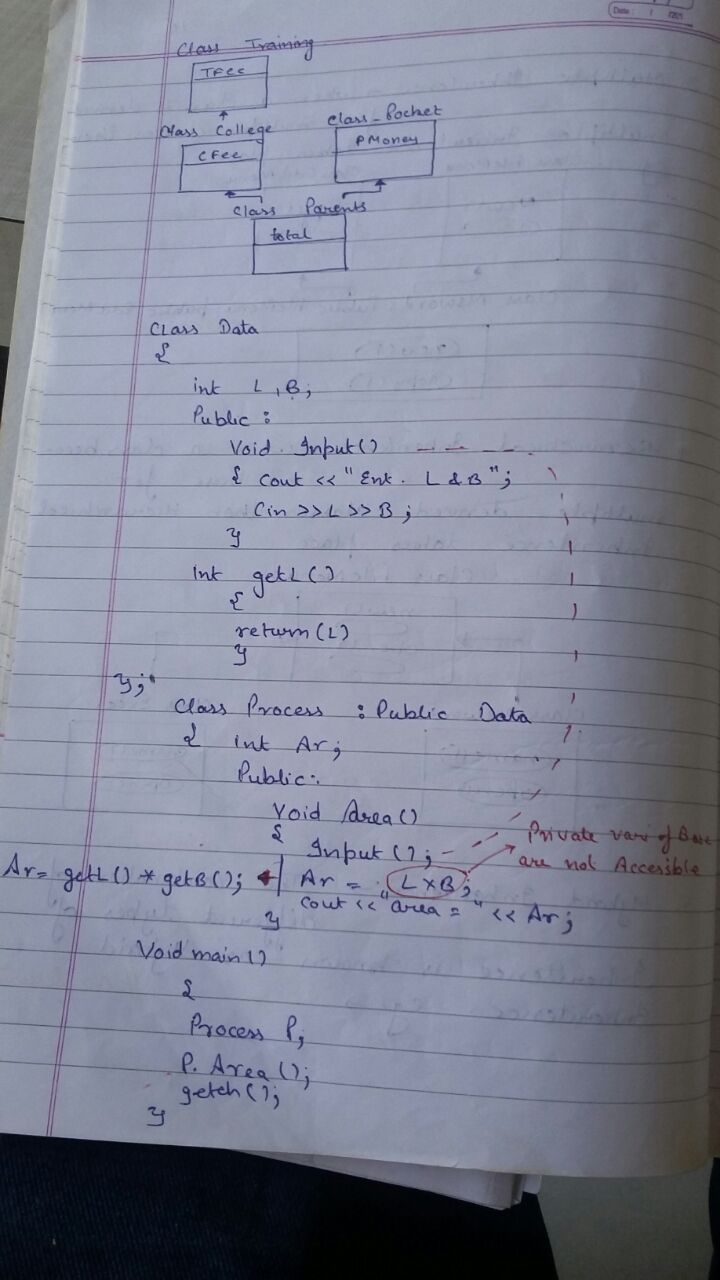 Date: / /201
Class Training
TFee
Class College
CFee
Class-Pocket
PMoney
Class Parents
total
Class Data
{
int L, B;
Public:
Void Input()
{ Cout << "Ent. L & B";
Cin >>L>>B;
}
int getL()
{
return(L)
}
};
Class Process : Public Data
{ int Ar;
Public:
Void Area()
{
Input();
Ar = L×B;
Private vars of Base
are not Accessible
Ar= getL()*getB();
cout << "area = " << Ar;
}
Void main()
{
Process P;
P. Area();
getch();
}